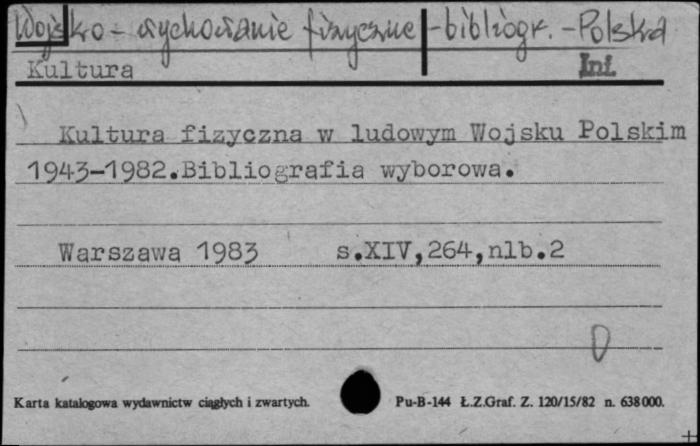 Wojsko - wychowanie fizyczne - bibliogr. - Polska
Kultura Inf.
Kultura fizyczna w ludowym Wojsku Polskim
1943-1982.Bibliografia wyborowa.
Warszawa 1983 s.XIV,264,nlb.2
Karta katalogowa wydawnictw ciągłych i zwartych. Pu-B-144 Ł.Z.Graf. Z. 120/15/82 n. 638000.